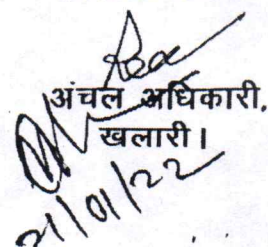 अंचल अधिकारी,
खलारी।
21/01/22